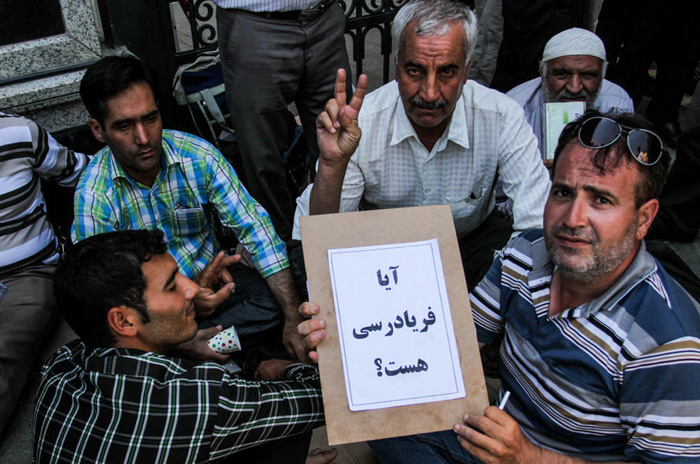 آیا
فریادرسی
هست؟